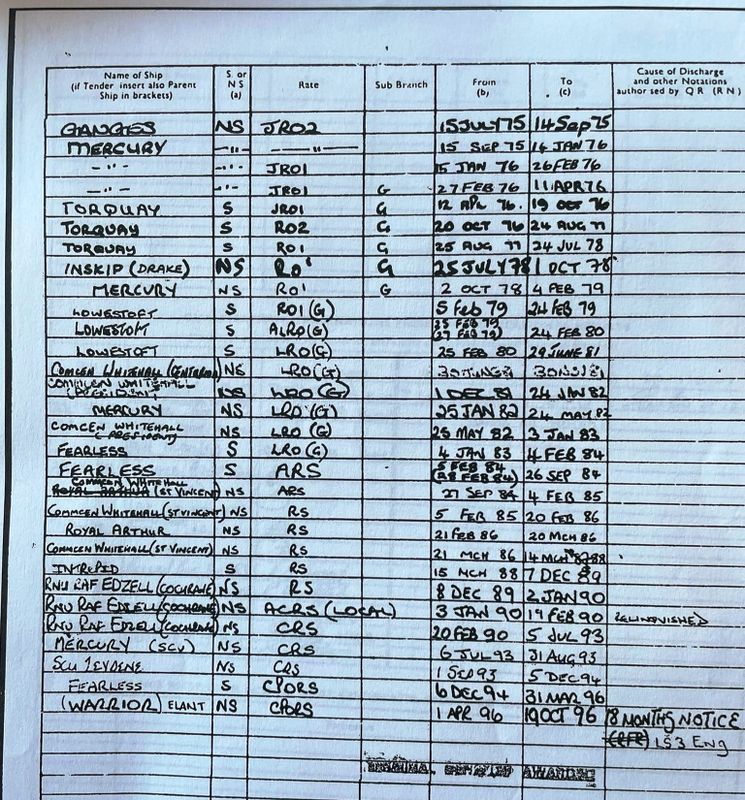 Name of Ship S. or Rate Sub Branch From To Cause of Discharge
(if Tender insert also Parent N S (b) (c) and other Notations
Ship in brackets) (a) authorised by Q R (R N)
GANGES NS JRO2 15 JULY 75 14 Sep 75
MERCURY —"— —"— 15 SEP 75 14 JAN 76
—"— —"— JRO1 15 JAN 76 26 FEB 76
—"— —"— JRO1 G 27 FEB 76 11 APR 76
TORQUAY S JRO1 G 12 APL 76. 19 OCT 76
TORQUAY S RO2 G 20 OCT 76 24 AUG 77
TORQUAY S RO1 G 25 AUG 77 24 JUL 78
INSKIP (DRAKE) NS RO1 G 25 JULY 78 1 OCT 78
MERCURY NS RO1 G 2 OCT 78 4 FEB 79
LOWESTOFT S RO1 (G) 5 Feb 79 24 FEB 79
LOWESTOFT S ALRO(G) 25 FEB 79 24 FEB 80
(27 FEB 79)
LOWESTOFT S LRO(G) 25 FEB 80 29 JUNE 81
COMCEN WHITEHALL NS LRO(G)
COMMCEN WHITEHALL LRO (G) 1 DEC 81 24 JAN 82
(PRESIDENT)
MERCURY NS LRO (G) 25 JAN 82 24 MAY 82
COMCEN WHITEHALL NS LRO (G) 25 MAY 82 3 JAN 83
(PRESIDENT)
FEARLESS S LRO (G) 4 JAN 83 4 FEB 84
FEARLESS S ARS 5 FEB 84 26 SEP 84
(28 FEB 84)
COMMCEN WHITEHALL
ROYAL ARTHUR (ST VINCENT) NS ARS 27 SEP 84 4 FEB 85
COMMCEN WHITEHALL (ST VINCENT) NS RS 5 FEB 85 20 FEB 86
ROYAL ARTHUR NS RS 21 FEB 86 20 MCH 86
COMMCEN WHITEHALL (ST VINCENT) NS RS 21 MCH 86 14 MCH 88
INTREPID S RS 15 MCH 88 7 DEC 89
RNU RAF EDZELL (COCHRANE) NS RS 8 DEC 89 2 JAN 90
RNU RAF EDZELL (COCHRANE) NS ACRS (LOCAL) 3 JAN 90 19 FEB 90 RELINQUISHED
RNU RAF EDZELL (COCHRANE) NS CRS 20 FEB 90 5 JUL 93
MERCURY (SCU) NS CRS 6 JUL 93 31 AUG 93
SCU LEYDENE NS CRS 1 SEP 93 5 DEC 94
FEARLESS S CPORS 6 DEC 94 31 MAR 96
(WARRIOR) ELANT NS CPORS 1 APR 96 19 OCT 96 18 MONTHS NOTICE
153 Eng
AWARDED